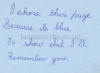 I chose this page
Because its blue
To show that I'll
Remember you.